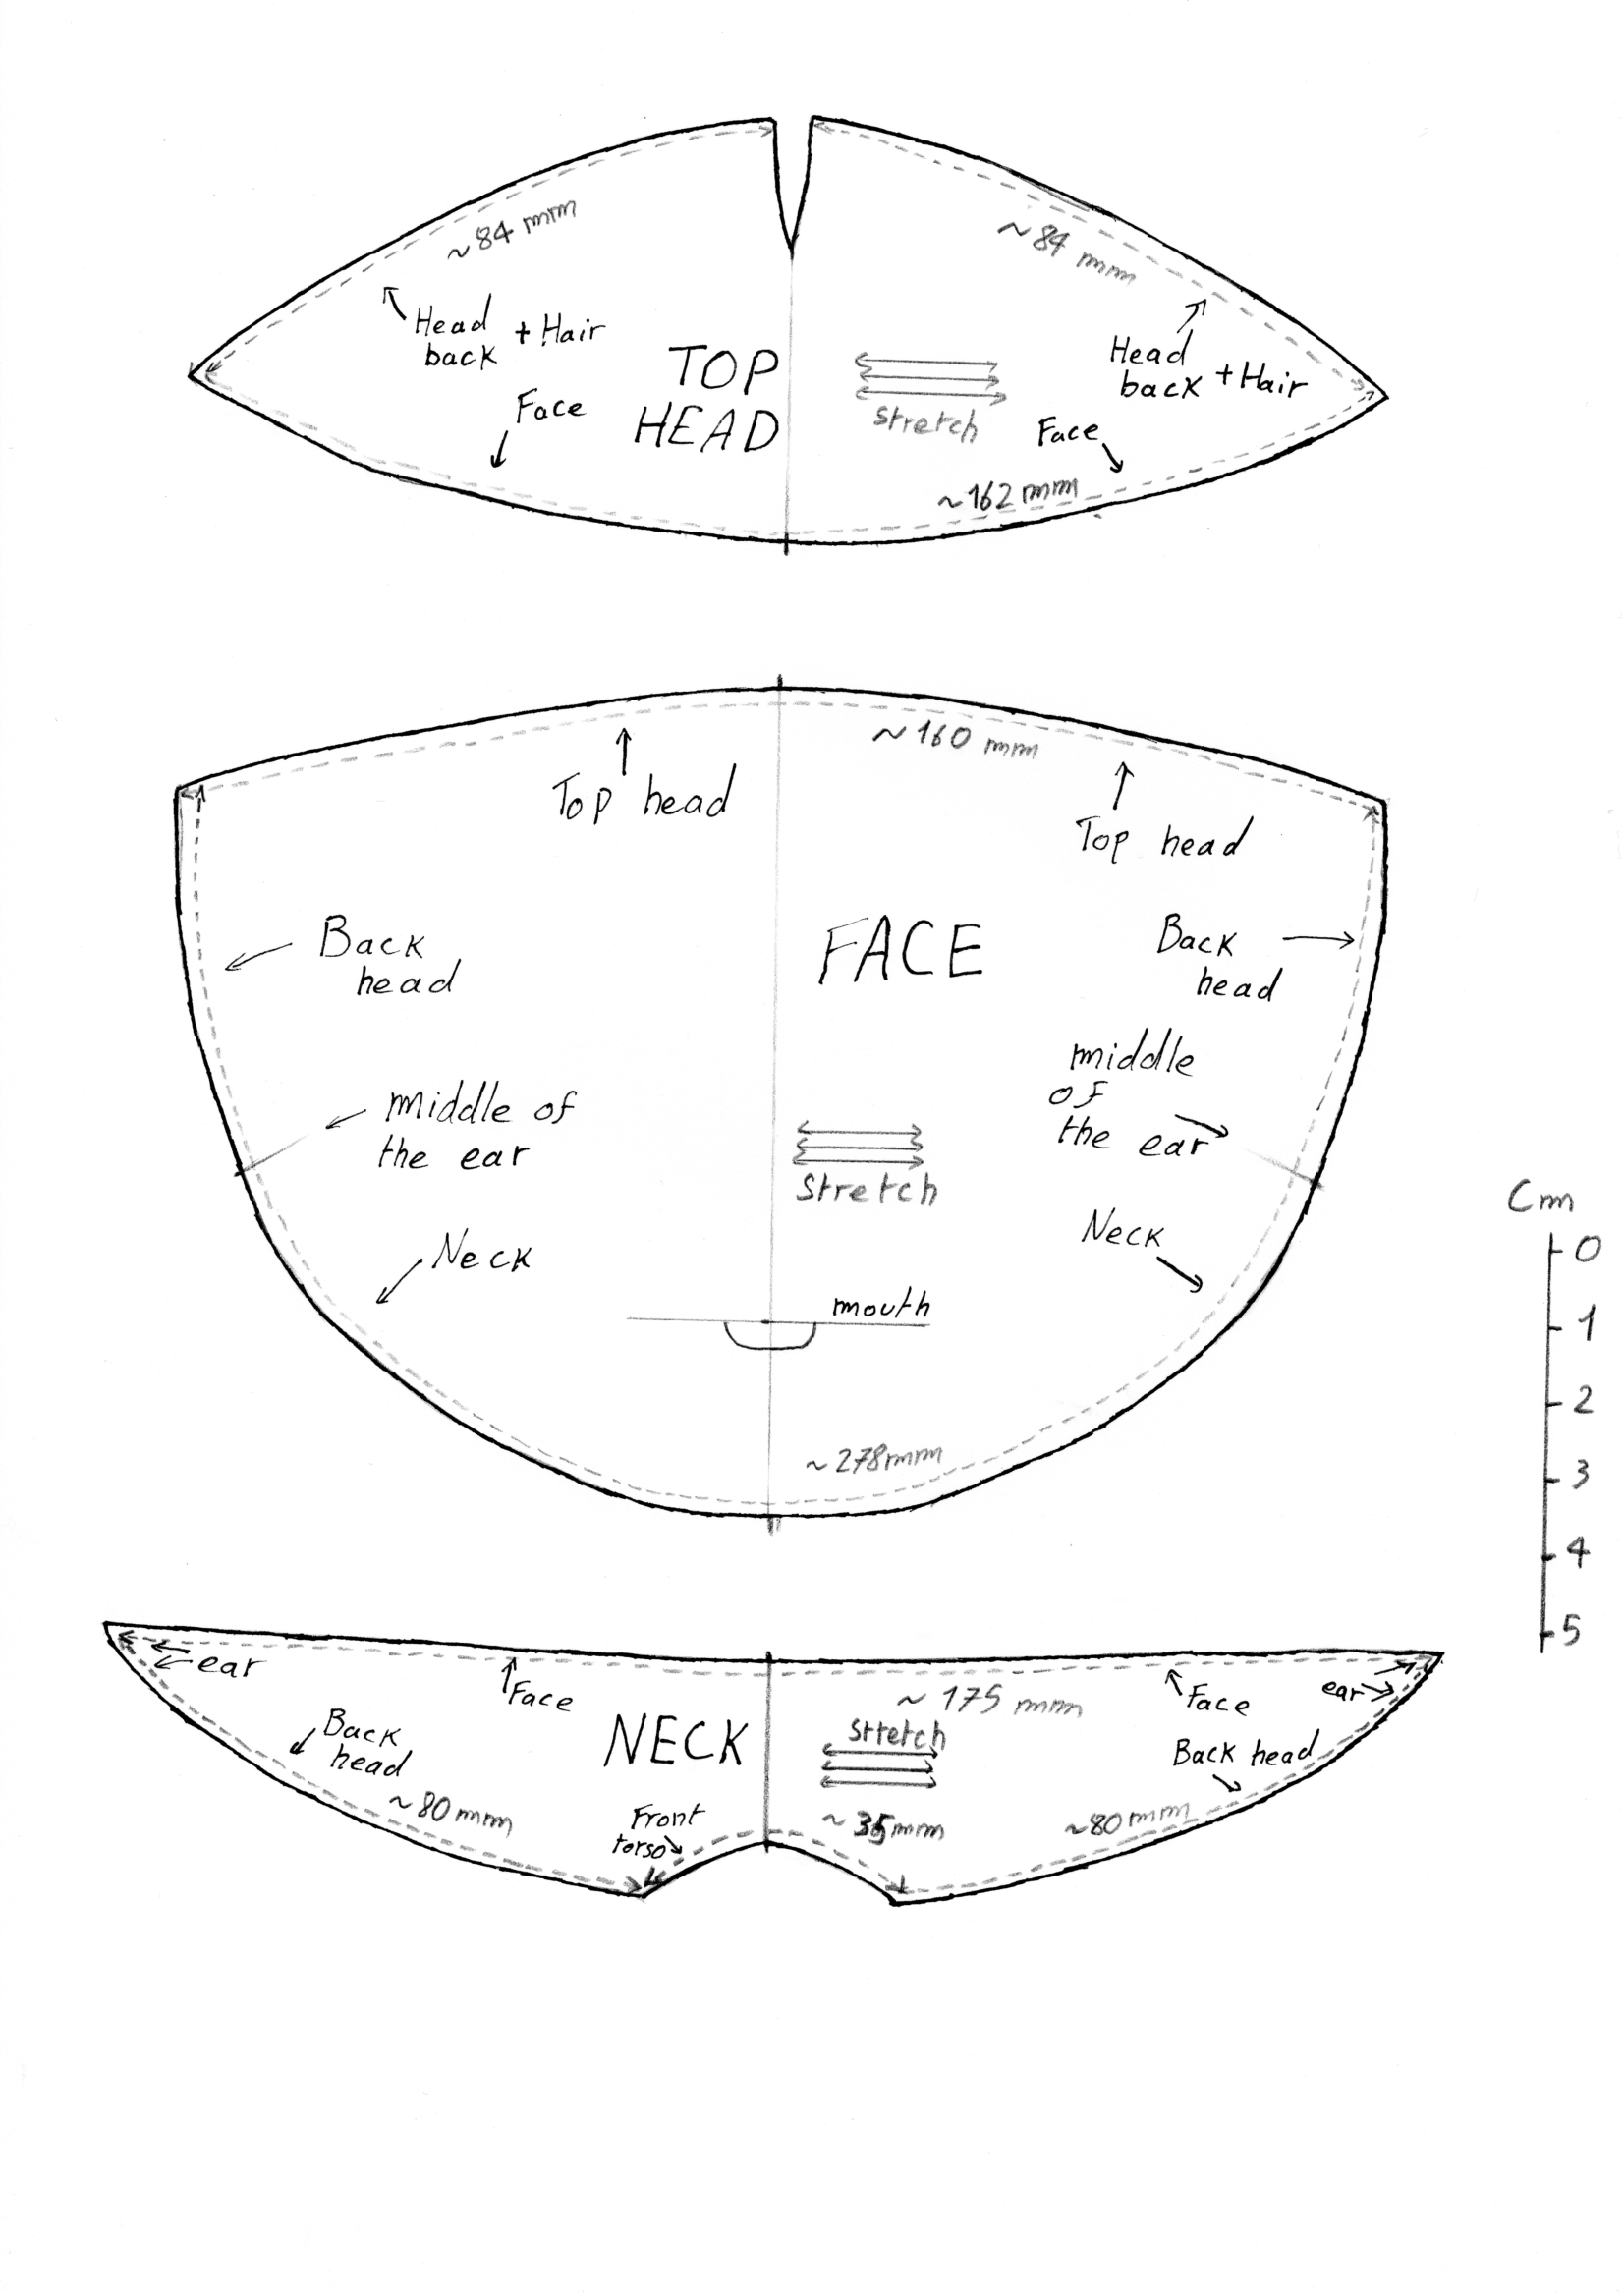 ~84 mm
~84 mm
Head
back + Hair
TOP
HEAD
Stretch
Head
back + Hair
Face
Face
~162 mm
~160 mm
Top head
Top head
Back
head
FACE
Back
head
middle of
the ear
middle
of
the ear
Stretch
Neck
Neck
mouth
~278mm
Cm
0
1
2
3
4
5
ear
Face
Back
head
NECK
~175 mm
Stretch
Face
ear
Back head
~80mm
Front
torso
~35mm
~80mm